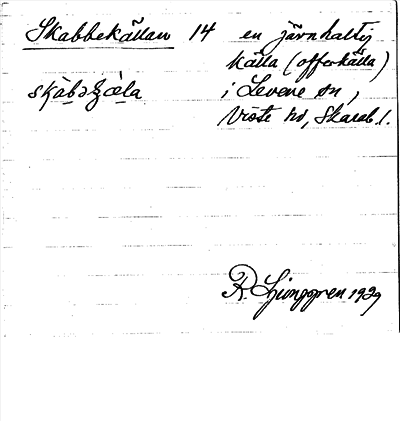 Skabbekällan 14 en järnhaltig
källa (offerkälla)
i Levene sn,
Viste hd, Skarab. l.
R. Ljunggren 1929